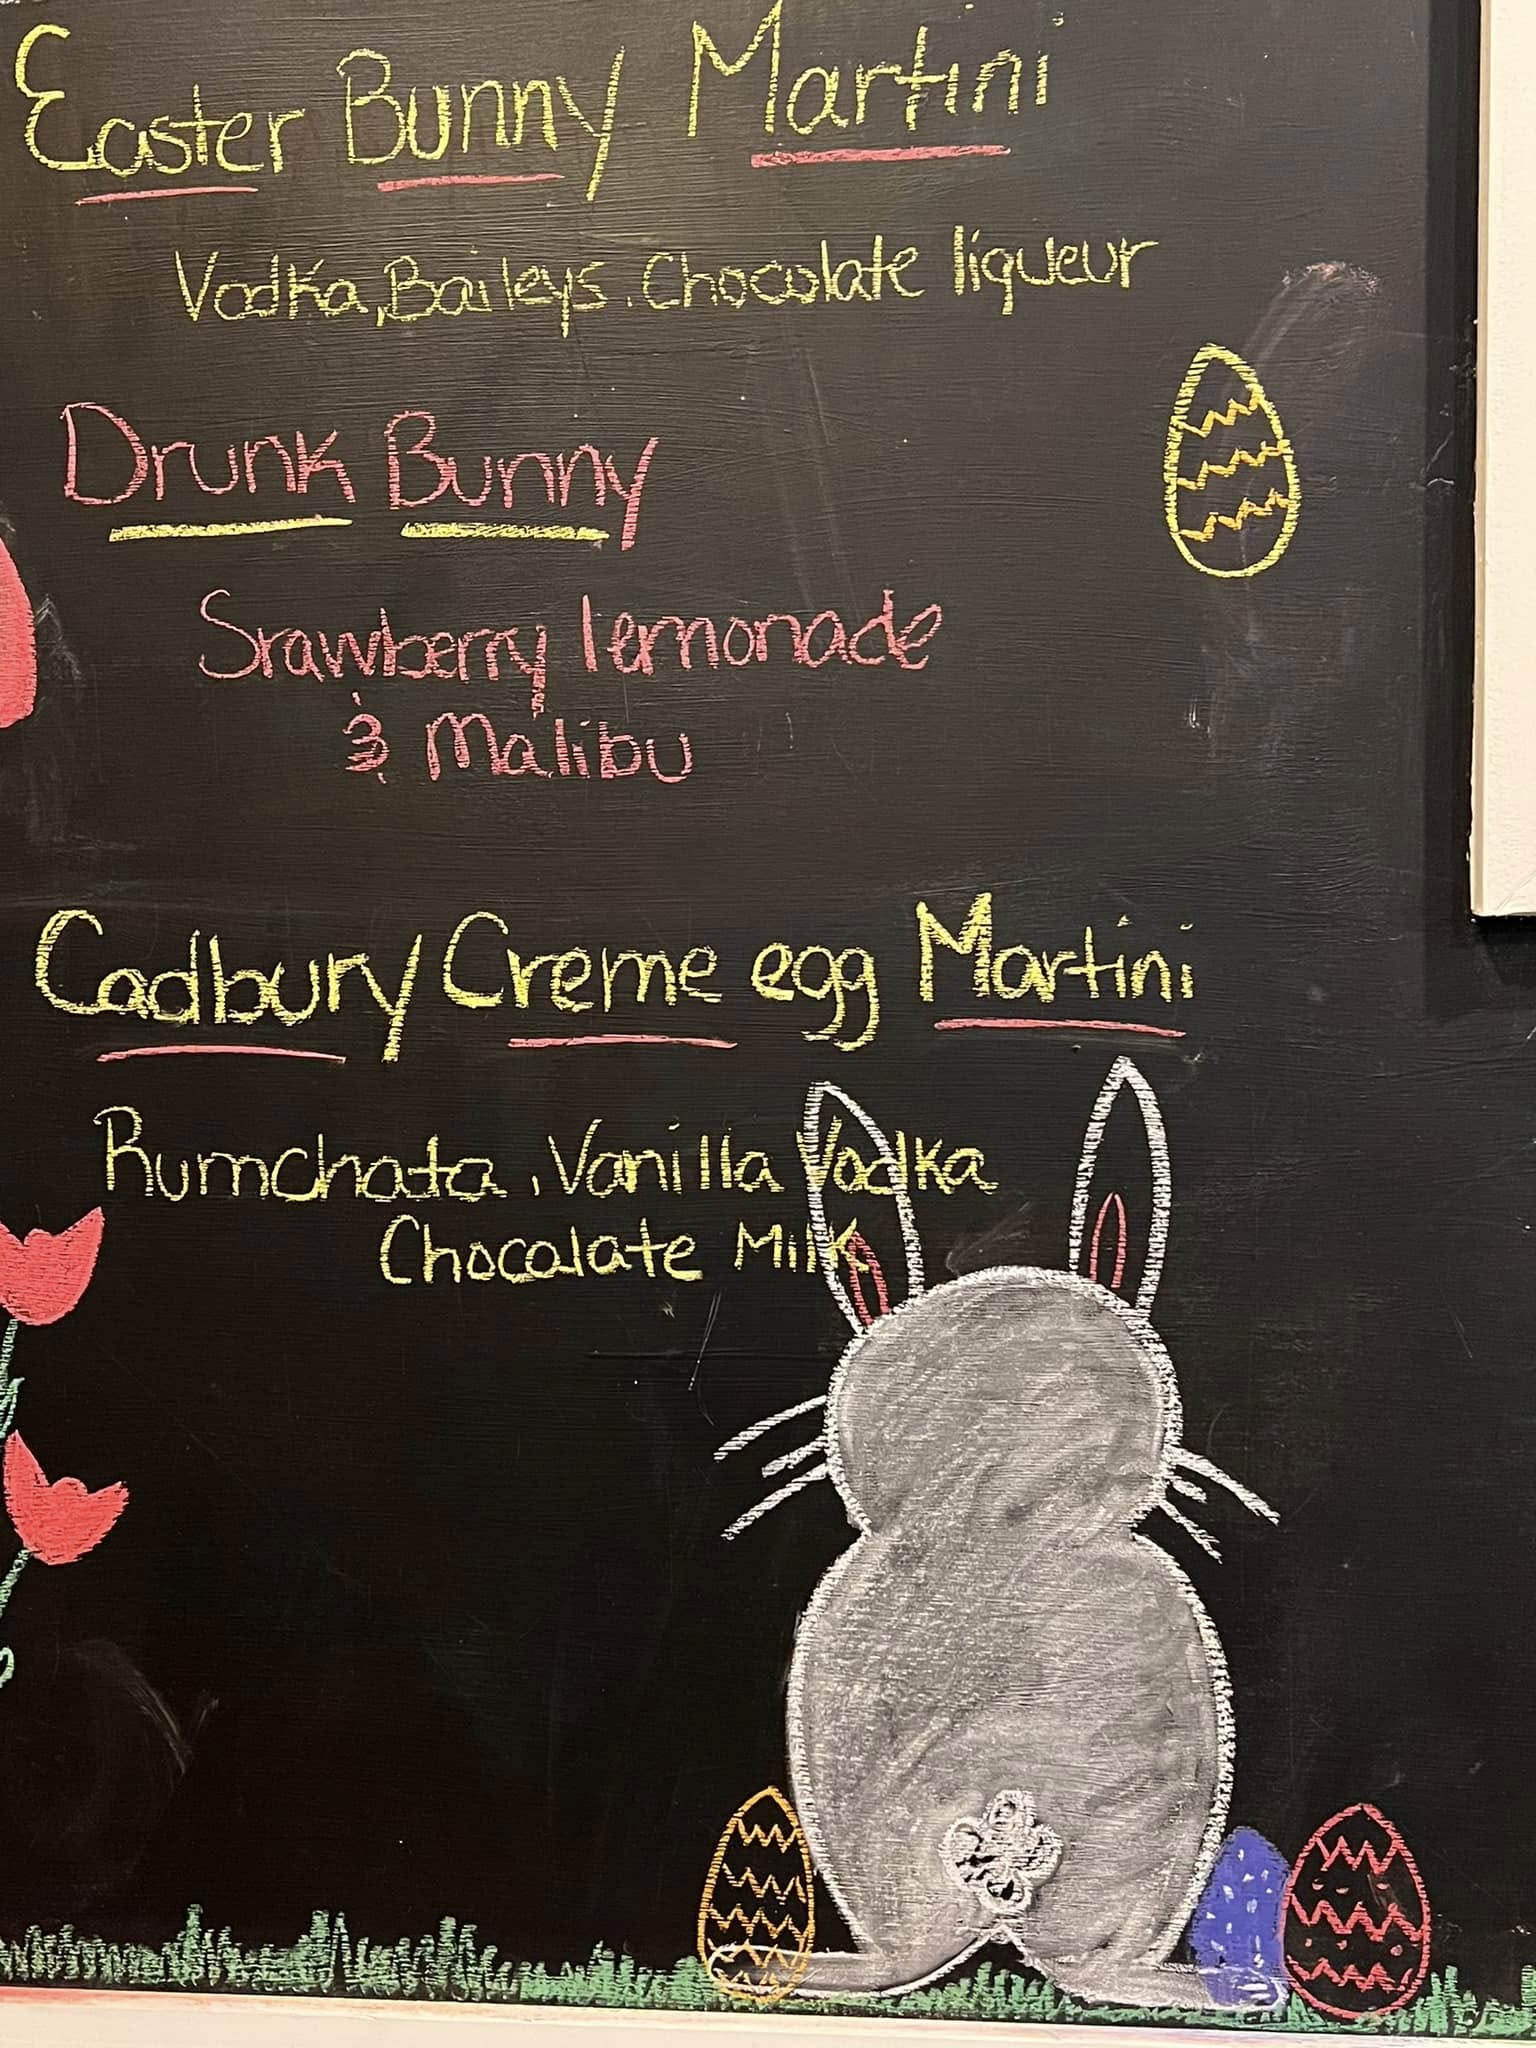 Easter Bunny Martini
Vodka, Baileys. Chocolate liqueur
Drunk Bunny
Srawberry lemonade
& Malibu
Cadbury Creme egg Martini
Rumchata, Vanilla Vodka
Chocolate Milk